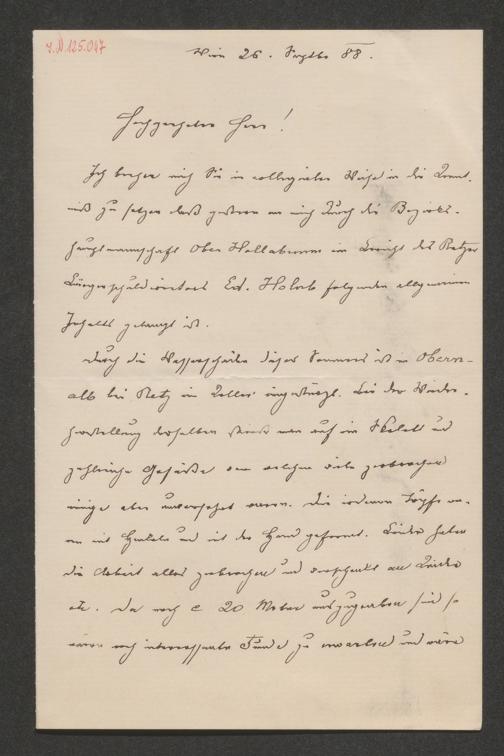 I.N.125.047
Wien 26. Septbr 88.
Hochgeehrter Herr!
Ich beehre mich Sie in collegialer Weise in die Kennt-
niß zu setzen daß gestern an mich durch die Bezirks-
hauptmannschaft Ober Hollabrunn ein Bericht des Retzer
Bürgerschuldirectors Ed. Holub folgenden allgemeinen
Inhalts gelangt ist.
Durch die Wasserschäden dieses Sommers ist in Obern-
alb bei Retz ein Keller eingestürzt. Bei der Wieder-
herstellung desselben stieß man auf ein Skelett und
zahlreiche Gefäße von welchen viele zerbrochen
einige aber unversehrt waren. Die irdenen Töpfe wa-
ren mit Henkeln und mit der Hand geformt. Leider haben
die Arbeiter alles zerbrochen und verschenkt an Kinder
etc. Da noch c 20 Meter auszugraben sind so
wären noch interessante Funde zu erwarten und wäre